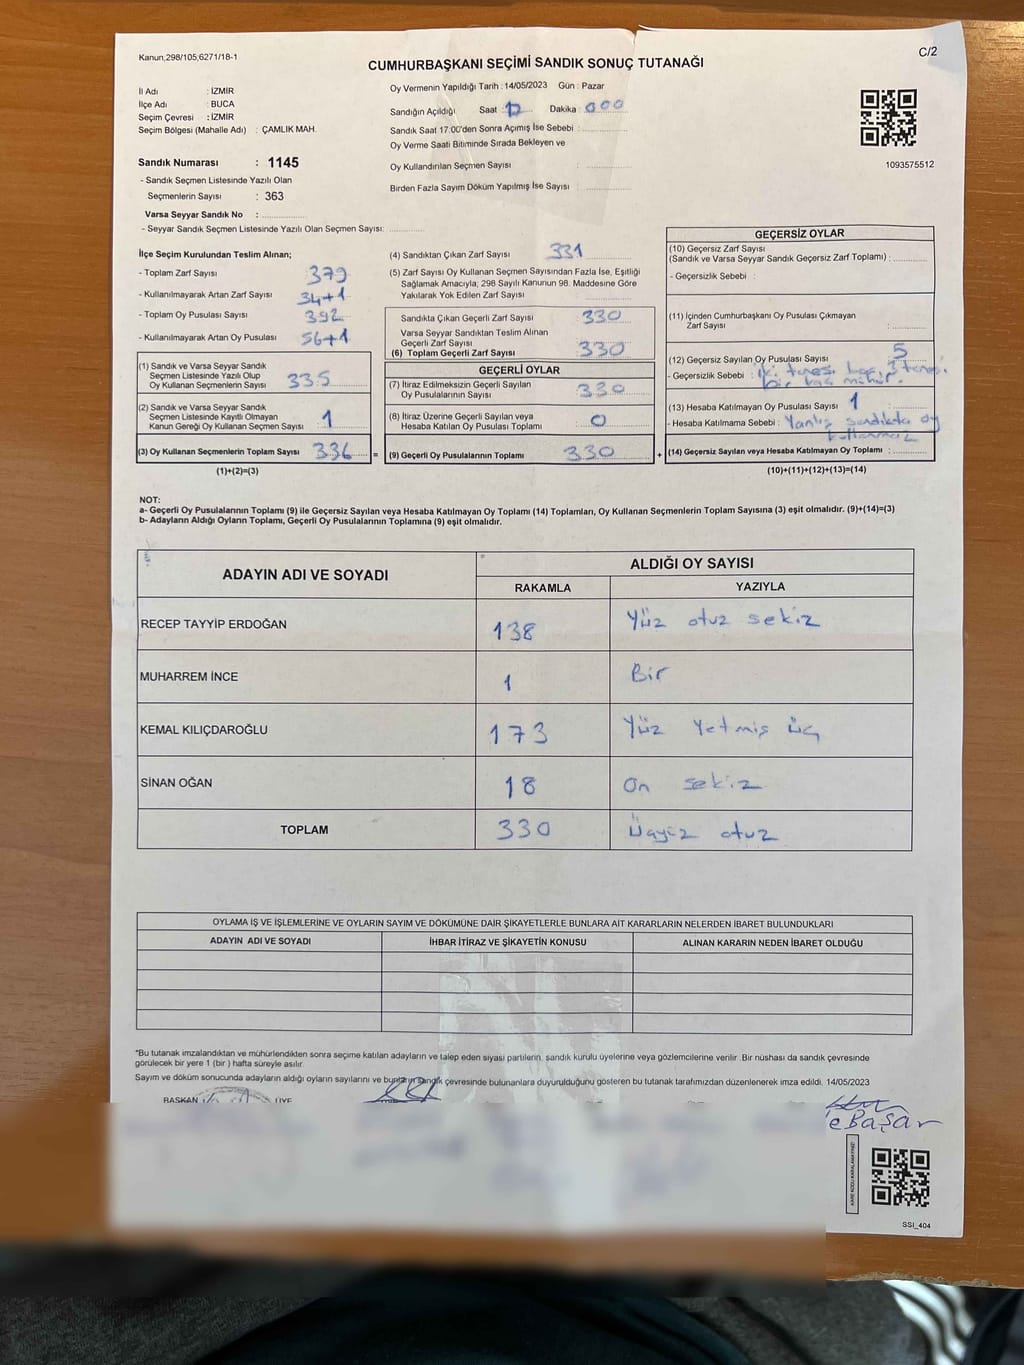 Kanun;298/105,6271/18-1
C/2
CUMHURBAŞKANI SEÇİMİ SANDIK SONUÇ TUTANAĞI
İl Adı : İZMİR
İlçe Adı : BUCA
Seçim Çevresi : İZMİR
Seçim Bölgesi (Mahalle Adı) : ÇAMLIK MAH.
Sandık Numarası : 1145
- Sandık Seçmen Listesinde Yazılı Olan
Seçmenlerin Sayısı : 363
Varsa Seyyar Sandık No :
- Seyyar Sandık Seçmen Listesinde Yazılı Olan Seçmen Sayısı:
Oy Vermenin Yapıldığı Tarih : 14/05/2023 Gün : Pazar
Sandığın Açıldığı Saat : Dakika : 000
Sandık Saat 17:00'den Sonra Açımış İse Sebebi :
Oy Verme Saati Bitiminde Sırada Bekleyen ve
Oy Kullandırılan Seçmen Sayısı :
Birden Fazla Sayım Döküm Yapılmış İse Sayısı :
1093575512
İlçe Seçim Kurulundan Teslim Alınan;
- Toplam Zarf Sayısı 379
- Kullanılmayarak Artan Zarf Sayısı 34+1
- Toplam Oy Pusulası Sayısı 392
- Kullanılmayarak Artan Oy Pusulası 56+1
(1) Sandık ve Varsa Seyyar Sandık
Seçmen Listesinde Yazılı Olup
Oy Kullanan Seçmenlerin Sayısı 335
(2) Sandık ve Varsa Seyyar Sandık
Seçmen Listesinde Kayıtlı Olmayan
Kanun Gereği Oy Kullanan Seçmen Sayısı 1
(3) Oy Kullanan Seçmenlerin Toplam Sayısı 336 =
(1)+(2)=(3)
(4) Sandıktan Çıkan Zarf Sayısı 331
(5) Zarf Sayısı Oy Kullanan Seçmen Sayısından Fazla İse, Eşitliği
Sağlamak Amacıyla; 298 Sayılı Kanunun 98. Maddesine Göre
Yakılarak Yok Edilen Zarf Sayısı
Sandıkta Çıkan Geçerli Zarf Sayısı 330
Varsa Seyyar Sandıktan Teslim Alınan
Geçerli Zarf Sayısı
(6) Toplam Geçerli Zarf Sayısı 330
GEÇERLİ OYLAR
(7) İtiraz Edilmeksizin Geçerli Sayılan
Oy Pusulalarının Sayısı : 330
(8) İtiraz Üzerine Geçerli Sayılan veya
Hesaba Katılan Oy Pusulası Toplamı : 0
(9) Geçerli Oy Pusulalarının Toplamı 330 +
GEÇERSİZ OYLAR
(10) Geçersiz Zarf Sayısı
(Sandık ve Varsa Seyyar Sandık Geçersiz Zarf Toplamı) :
- Geçersizlik Sebebi :
(11) İçinden Cumhurbaşkanı Oy Pusulası Çıkmayan
Zarf Sayısı :
(12) Geçersiz Sayılan Oy Pusulası Sayısı 5
- Geçersizlik Sebebi : iki tanesi boş, 3 tanesi
(13) Hesaba Katılmayan Oy Pusulası Sayısı : 1
- Hesaba Katılmama Sebebi : Yanlış sandıkta oy
kullanmaz
(14) Geçersiz Sayılan veya Hesaba Katılmayan Oy Toplamı :
(10)+(11)+(12)+(13)=(14)
NOT:
a- Geçerli Oy Pusulalarının Toplamı (9) ile Geçersiz Sayılan veya Hesaba Katılmayan Oy Toplamı (14) Toplamları, Oy Kullanan Seçmenlerin Toplam Sayısına (3) eşit olmalıdır. (9)+(14)=(3)
b- Adayların Aldığı Oyların Toplamı, Geçerli Oy Pusulalarının Toplamına (9) eşit olmalıdır.
ADAYIN ADI VE SOYADI ALDIĞI OY SAYISI
RAKAMLA YAZIYLA
RECEP TAYYİP ERDOĞAN 138 Yüz otuz sekiz
MUHARREM İNCE 1 Bir
KEMAL KILIÇDAROĞLU 173 Yüz Yetmiş üç
SİNAN OĞAN 18 On sekiz
TOPLAM 330 Üçyüz otuz
OYLAMA İŞ VE İŞLEMLERİNE VE OYLARIN SAYIM VE DÖKÜMÜNE DAİR ŞİKAYETLERLE BUNLARA AİT KARARLARIN NELERDEN İBARET BULUNDUKLARI
ADAYIN ADI VE SOYADI İHBAR İTİRAZ VE ŞİKAYETİN KONUSU ALINAN KARARIN NEDEN İBARET OLDUĞU
*Bu tutanak imzalandıktan ve mühürlendikten sonra seçime katılan adayların ve talep eden siyasi partilerin, sandık kurulu üyelerine veya gözlemcilerine verilir. Bir nüshası da sandık çevresinde
görülecek bir yere 1 (bir ) hafta süreyle asılır.
Sayım ve döküm sonucunda adayların aldığı oyların sayılarını ve bunların sandık çevresinde bulunanlara duyurulduğunu gösteren bu tutanak tarafımızdan düzenlenerek imza edildi. 14/05/2023
BAŞKAN ÜYE
eBaşar
KARE KODU KARALAMAYINIZ
SSI_404